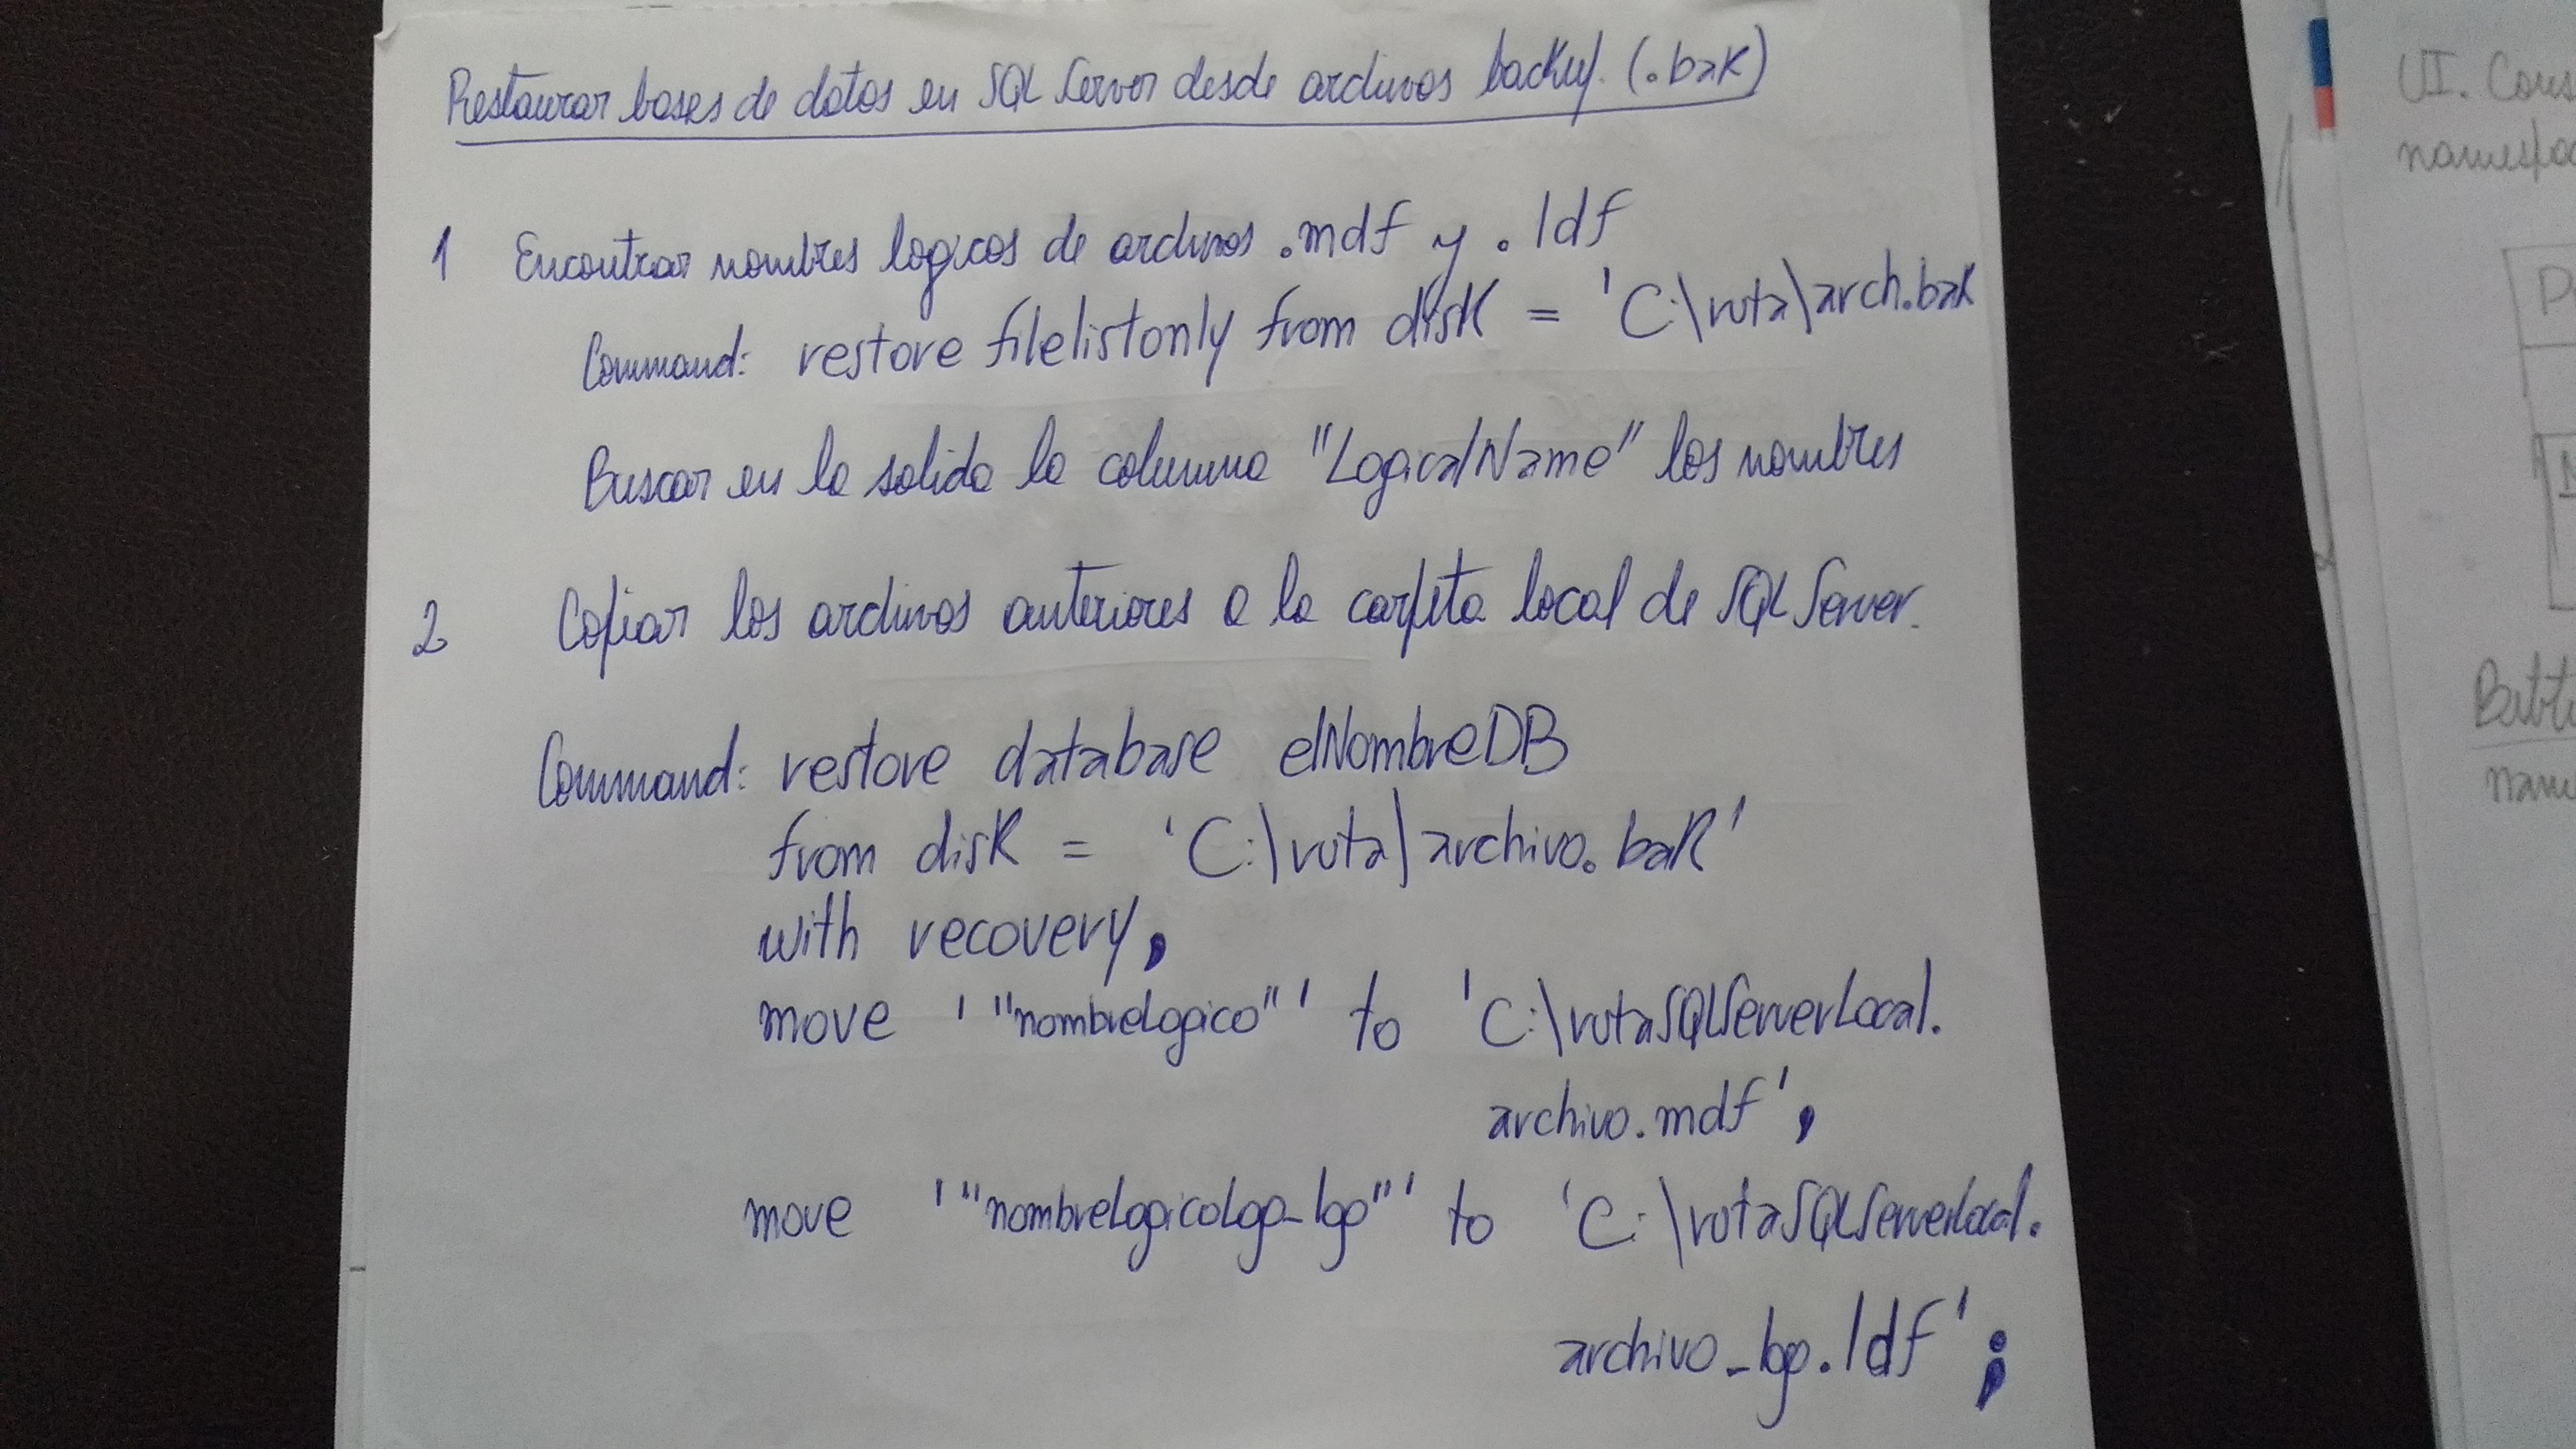 Restaurar bases de datos en SQL Server desde archivos backup. (.bak)
1 Encontrar nombres logicos de archivos .mdf y .ldf
Command: restore filelistonly from disk = 'C:\ruta\arch.bak
Buscar en la salida la columna "LogicalName" los nombres
2 Copiar los archivos anteriores a la carpeta local de SQL Server.
Command: restore database elNombreDB
from disk = 'C:\ruta\archivo.bak'
with recovery,
move '"nombreLogico"' to 'C:\rutaSQLServerLocal.
archivo.mdf',
move '"nombreLogicoLog_log"' to 'C:\rutaSQLServerLocal.
archivo_log.ldf';
UI. Cons